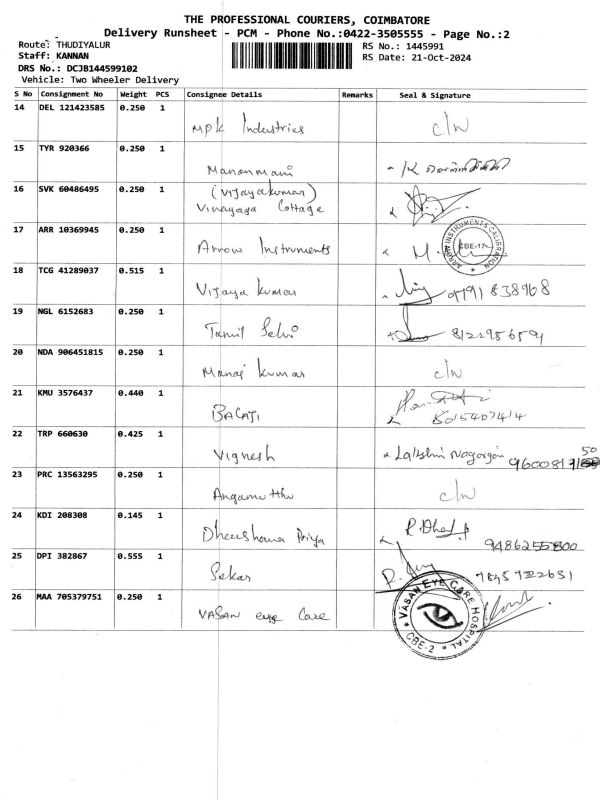 THE PROFESSIONAL COURIERS, COIMBATORE
Delivery Runsheet - PCM - Phone No.:0422-3505555 - Page No.:2
Route: THUDIYALUR
RS No.: 1445991
Staff: KANNAN
RS Date: 21-Oct-2024
DRS No.: DCJB144599102
Vehicle: Two Wheeler Delivery
S No Consignment No Weight PCS Consignee Details Remarks Seal & Signature
14 DEL 121423585 0.250 1
MPK Industries c/w
15 TYR 920366 0.250 1
Manonmani
16 SVK 60486495 0.250 1
(Vijayakumar)
Vinayaga Cottage
17 ARR 10369945 0.250 1
Arrow Instruments M.
ARROW INSTRUMENTS CALIBRATION
CBE-17
18 TCG 41289037 0.515 1
Vijaya Kumar 9791 838968
19 NGL 6152683 0.250 1
Tamil Selvi
20 NDA 906451815 0.250 1
Manoj Kumar c/w
21 KMU 3576437 0.440 1
BALAJI 8015407414
22 TRP 660630 0.425 1
Vignesh Lakshmi Nagarajan
50
23 PRC 13563295 0.250 1
Angamuthu c/w
24 KDI 208308 0.145 1
Priya 9486255800
25 DPI 382867 0.555 1
Sekar
26 MAA 705379751 0.250 1
VASAN eye Care
VASAN EYE CARE HOSPITAL
CBE-2